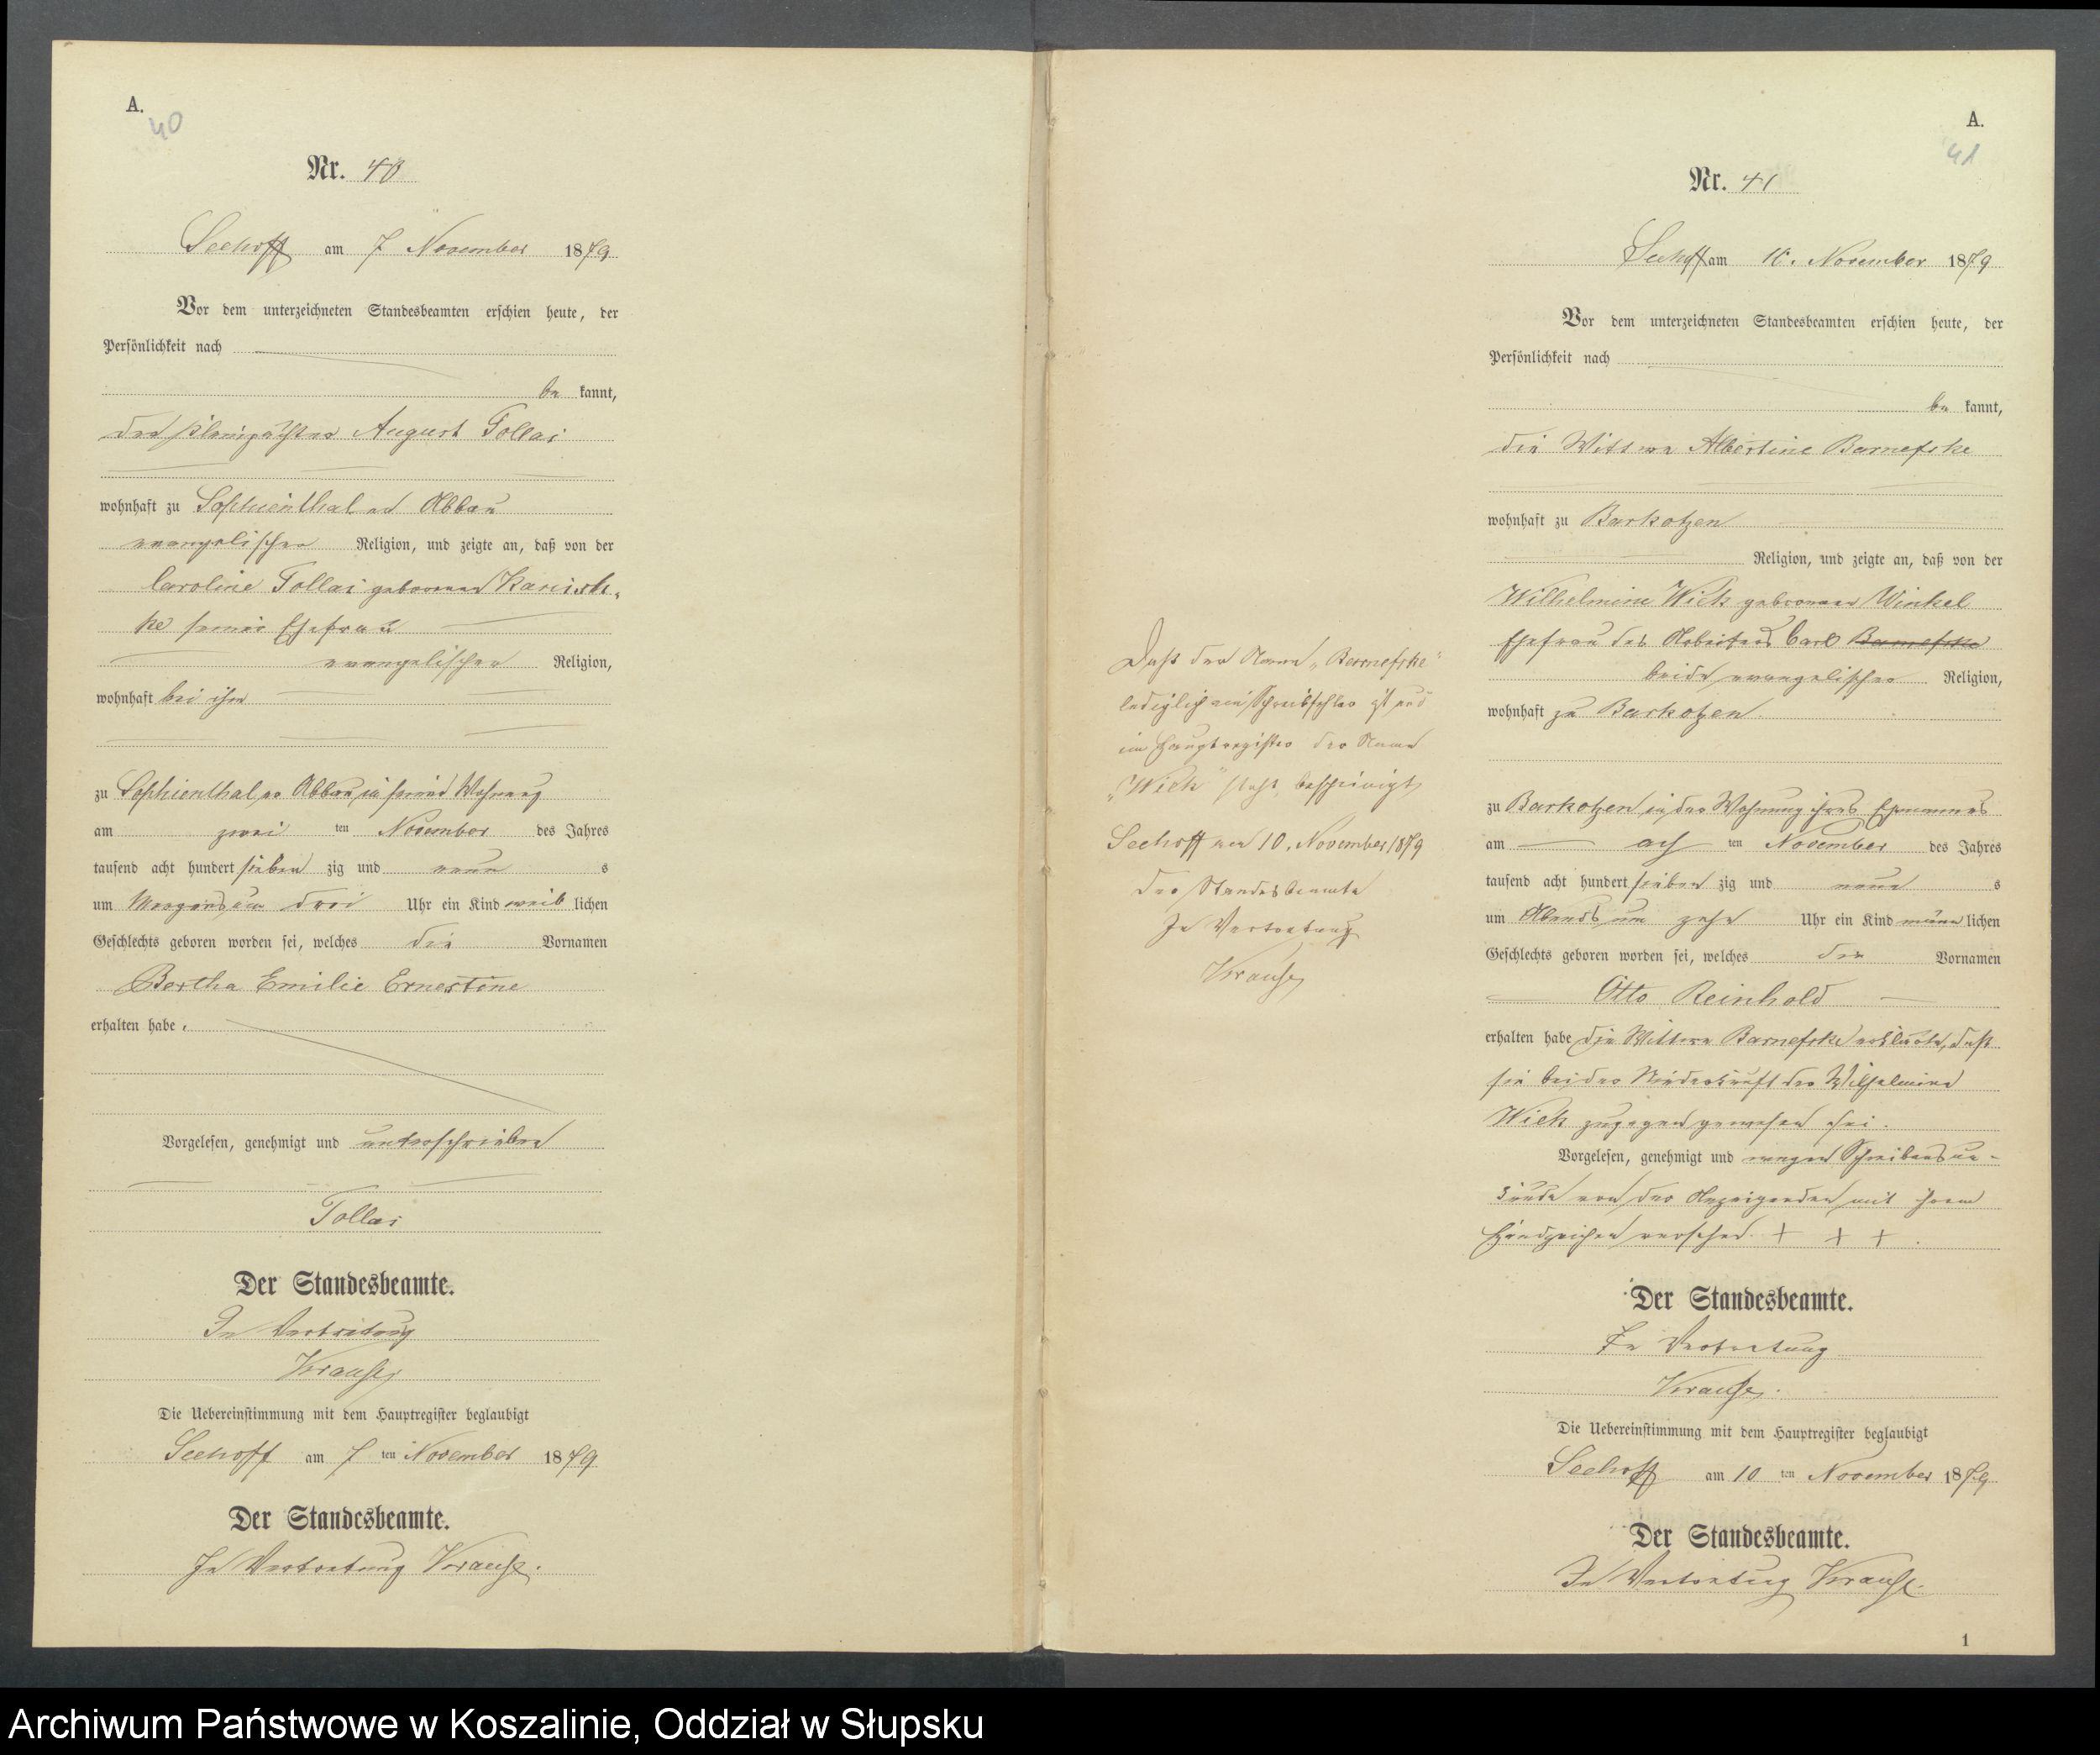 A.
40
Nr. 40
Seehoff am 7 November 1879
Vor dem unterzeichneten Standesbeamten erschien heute, der
Persönlichkeit nach
be kannt,
der August Tollas
wohnhaft zu Sophienthal Abbau
evangelischer Religion, und zeigte an, daß von der
Caroline Tollas geborenen Kanisch-
ke seiner Ehefrau
evangelischer Religion,
wohnhaft bei ihm
zu Sophienthal Abbau in seiner Wohnung
am zwei ten November des Jahres
tausend acht hundert sieben zig und neun s
um Morgens um drei Uhr ein Kind weib lichen
Geschlechts geboren worden sei, welches die Vornamen
Bertha Emilie Ernestine
erhalten habe.
Vorgelesen, genehmigt und unterschrieben
Tollas
Der Standesbeamte.
In Vertretung
Krause
Die Uebereinstimmung mit dem Hauptregister beglaubigt
Seehoff am 7 ten November 1879
Der Standesbeamte.
In Vertretung Krause.
Daß der Name „Barnefske"
lediglich ein Schreibfehler ist und
im Hauptregister der Name
„Wick" steht, bescheinigt
Seehoff am 10. November 1879
Der Standesbeamte
In Vertretung
Krause
A.
41
Nr. 41
Seehoff am 10. November 1879
Vor dem unterzeichneten Standesbeamten erschien heute, der
Persönlichkeit nach
be kannt,
die Wittwe Albertine Barnefske
wohnhaft zu Barkotzen
Religion, und zeigte an, daß von der
Wilhelmine Wick geborenen Winkel
Ehefrau des Arbeiters Carl Barnefske
beide evangelischer Religion,
wohnhaft zu Barkotzen.
zu Barkotzen in der Wohnung ihres Ehemannes
am ach ten November des Jahres
tausend acht hundert sieben zig und neun s
um Abends um zehn Uhr ein Kind männ lichen
Geschlechts geboren worden sei, welches die Vornamen
Otto Reinhold
erhalten habe die Wittwe Barnefske erklärte, daß
sie bei der Niederkunft der Wilhelmine
Wick zugegen gewesen sei.
Vorgelesen, genehmigt und wegen Schreibensun-
kunde von der Anzeigenden mit ihrem
Handzeichen versehen. + + +.
Der Standesbeamte.
In Vertretung
Krause.
Die Uebereinstimmung mit dem Hauptregister beglaubigt
Seehoff am 10 ten November 1879
Der Standesbeamte.
In Vertretung Krause.
1
Archiwum Państwowe w Koszalinie, Oddział w Słupsku